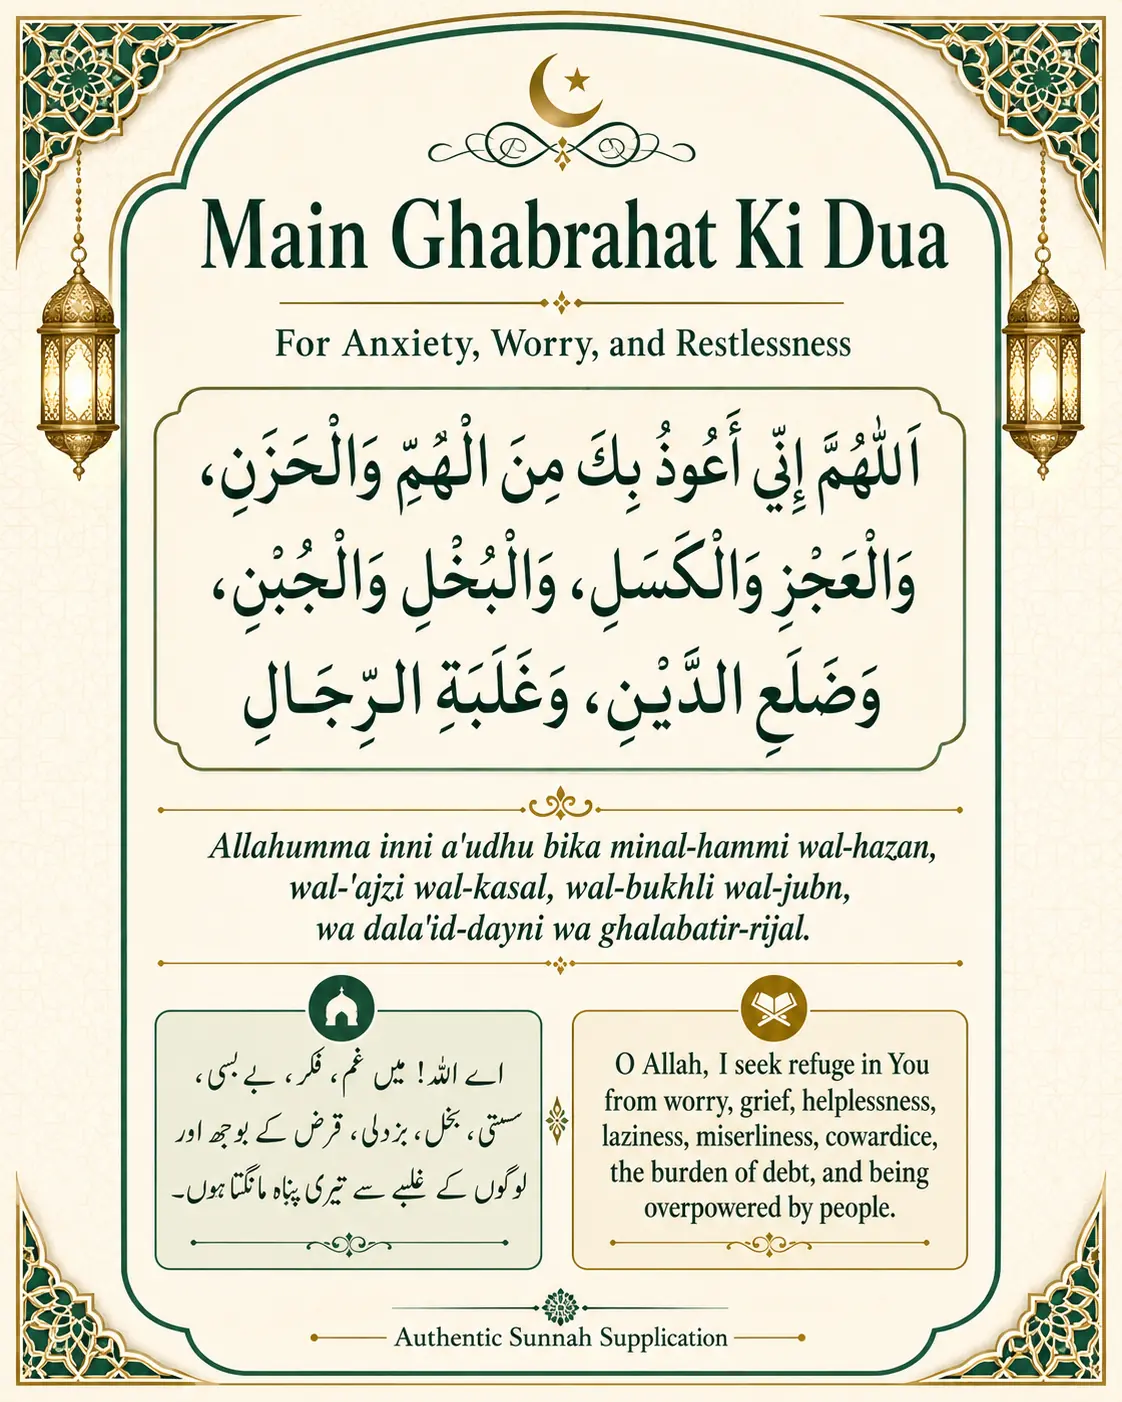 Main Ghabrahat Ki Dua
For Anxiety, Worry, and Restlessness
اَللّٰهُمَّ إِنِّي أَعُوذُ بِكَ مِنَ الْهَمِّ وَالْحَزَنِ،
وَالْعَجْزِ وَالْكَسَلِ، وَالْبُخْلِ وَالْجُبْنِ،
وَضَلَعِ الدَّيْنِ، وَغَلَبَةِ الرِّجَالِ
Allahumma inni a'udhu bika minal-hammi wal-hazan,
wal-'ajzi wal-kasal, wal-bukhli wal-jubn,
wa dala'id-dayni wa ghalabatir-rijal.
اے اللہ! میں غم، فکر، بے بسی،
سستی، بخل، بزدلی، قرض کے بوجھ اور
لوگوں کے غلبے سے تیری پناہ مانگتا ہوں۔
O Allah, I seek refuge in You
from worry, grief, helplessness,
laziness, miserliness, cowardice,
the burden of debt, and being
overpowered by people.
Authentic Sunnah Supplication